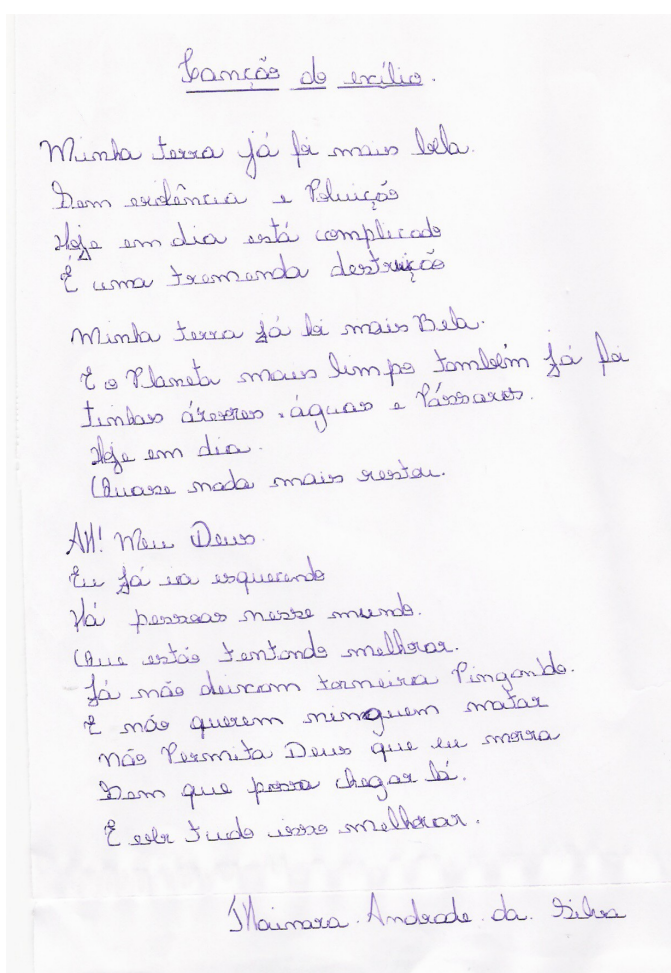 Canção do exílio.
Minha terra já foi mais bela.
Sem violência e Poluição
Hoje em dia está complicado
É uma tremenda destruição
Minha terra já foi mais Bela.
E o Planeta mais limpo também já foi
tinhas árvores, águas e Pássaros.
Hoje em dia.
Quase nada mais restou.
AH! Meu Deus.
Eu já ia esquecendo
Há pessoas nesse mundo.
Que estão tentando melhorar.
Já não deixam torneira Pingando.
E não querem ninguem matar
Não Permita Deus que eu morra
Sem que possa chegar lá.
E ver tudo isso melhorar.
Mainara Andrade da Silva